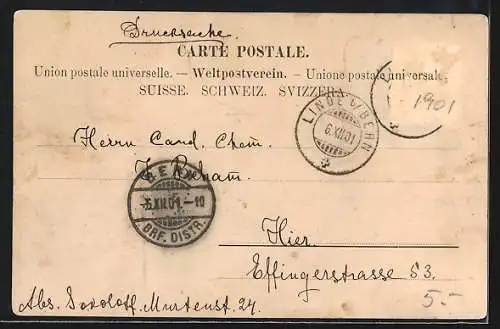 Drucksache.
CARTE POSTALE.
Union postale universelle. — Weltpostverein. — Unione postale universale.
SUISSE. SCHWEIZ. SVIZZERA.
1901
LINDE b/BERN
6.XII.01
Herrn Cand. Chem.
BERN
-6.XII.01.-10
BRF. DISTR.
Hier.
Effingerstrasse 53.
5.-
Abs. Murtenst. 27.